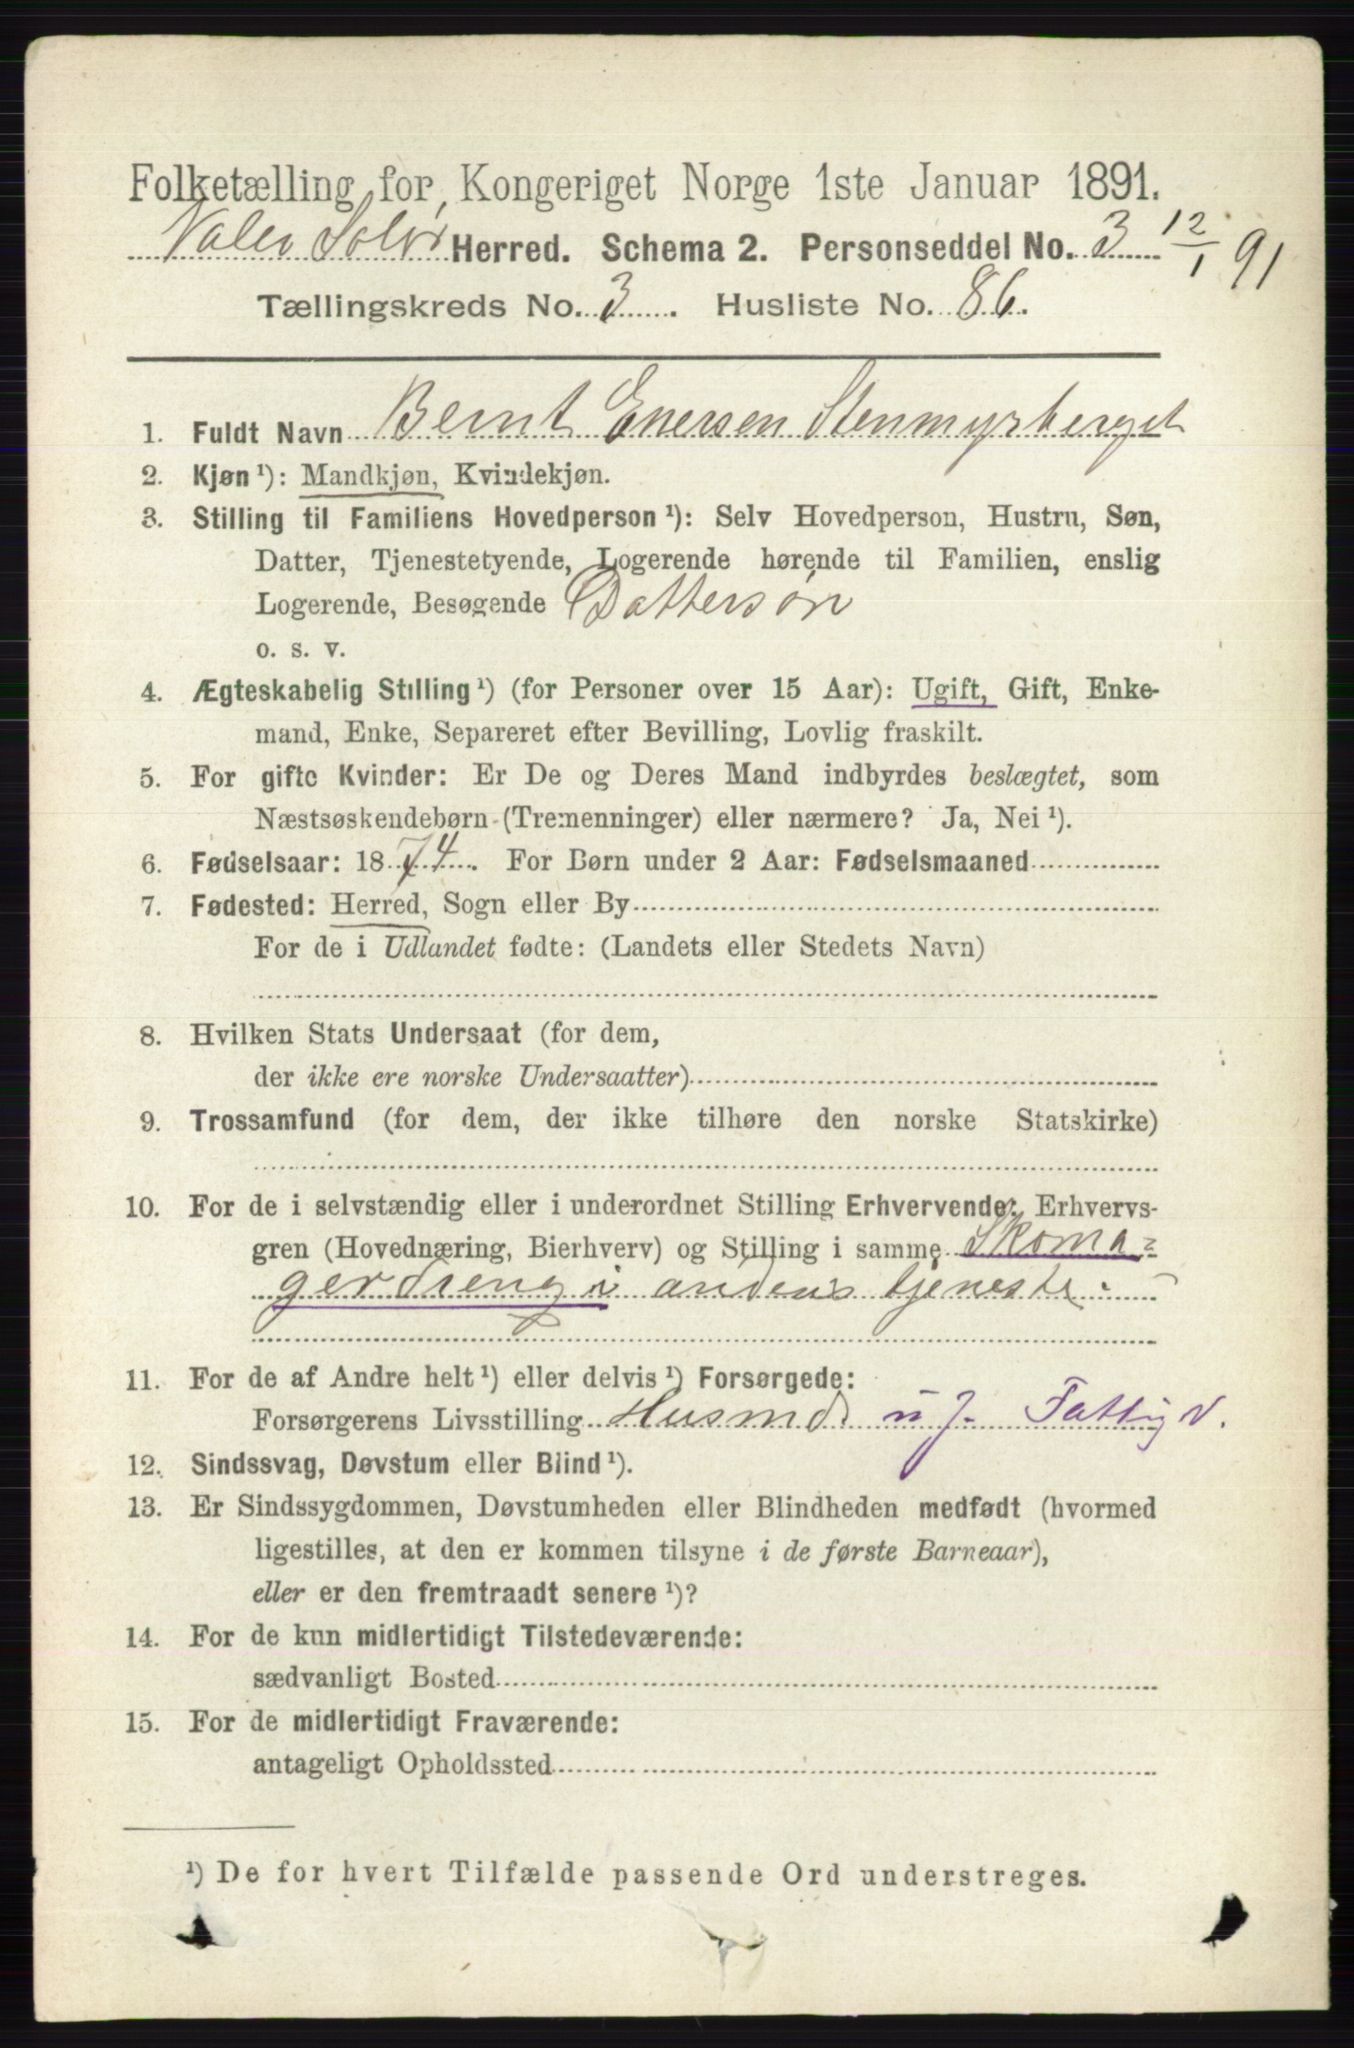 Folketælling for Kongeriget Norge 1ste Januar 1891.
Valer Solør Herred. Schema 2. Personseddel No. 3 12/1 91
Tællingskreds No. 3. Husliste No. 86.
1. Fuldt Navn Bernt Enersen Stenmyrberget
2. Kjøn¹): Mandkjøn, Kvindekjøn.
3. Stilling til Familiens Hovedperson¹): Selv Hovedperson, Hustru, Søn,
Datter, Tjenestetyende, Logerende hørende til Familien, enslig
Logerende, Besøgende Dattersøn
o. s. v.
4. Ægteskabelig Stilling¹) (for Personer over 15 Aar): Ugift, Gift, Enke-
mand, Enke, Separeret efter Bevilling, Lovlig fraskilt.
5. For gifte Kvinder: Er De og Deres Mand indbyrdes beslægtet, som
Næstsøskendebørn (Tremenninger) eller nærmere? Ja, Nei¹).
6. Fødselsaar: 1874. For Børn under 2 Aar: Fødselsmaaned
7. Fødested: Herred, Sogn eller By
For de i Udlandet fødte: (Landets eller Stedets Navn)
8. Hvilken Stats Undersaat (for dem,
der ikke ere norske Undersaatter)
9. Trossamfund (for dem, der ikke tilhøre den norske Statskirke)
10. For de i selvstændig eller i underordnet Stilling Erhvervende: Erhvervs-
gren (Hovednæring, Bierhverv) og Stilling i samme Skoma-
gerdreng i andens tjeneste.
11. For de af Andre helt¹) eller delvis¹) Forsørgede:
Forsørgerens Livsstilling Husmd u J. Fattigv.
12. Sindssvag, Døvstum eller Blind¹).
13. Er Sindssygdommen, Døvstumheden eller Blindheden medfødt (hvormed
ligestilles, at den er kommen tilsyne i de første Barneaar),
eller er den fremtraadt senere¹)?
14. For de kun midlertidigt Tilstedeværende:
sædvanligt Bosted
15. For de midlertidigt Fraværende:
antageligt Opholdssted
¹) De for hvert Tilfælde passende Ord understreges.